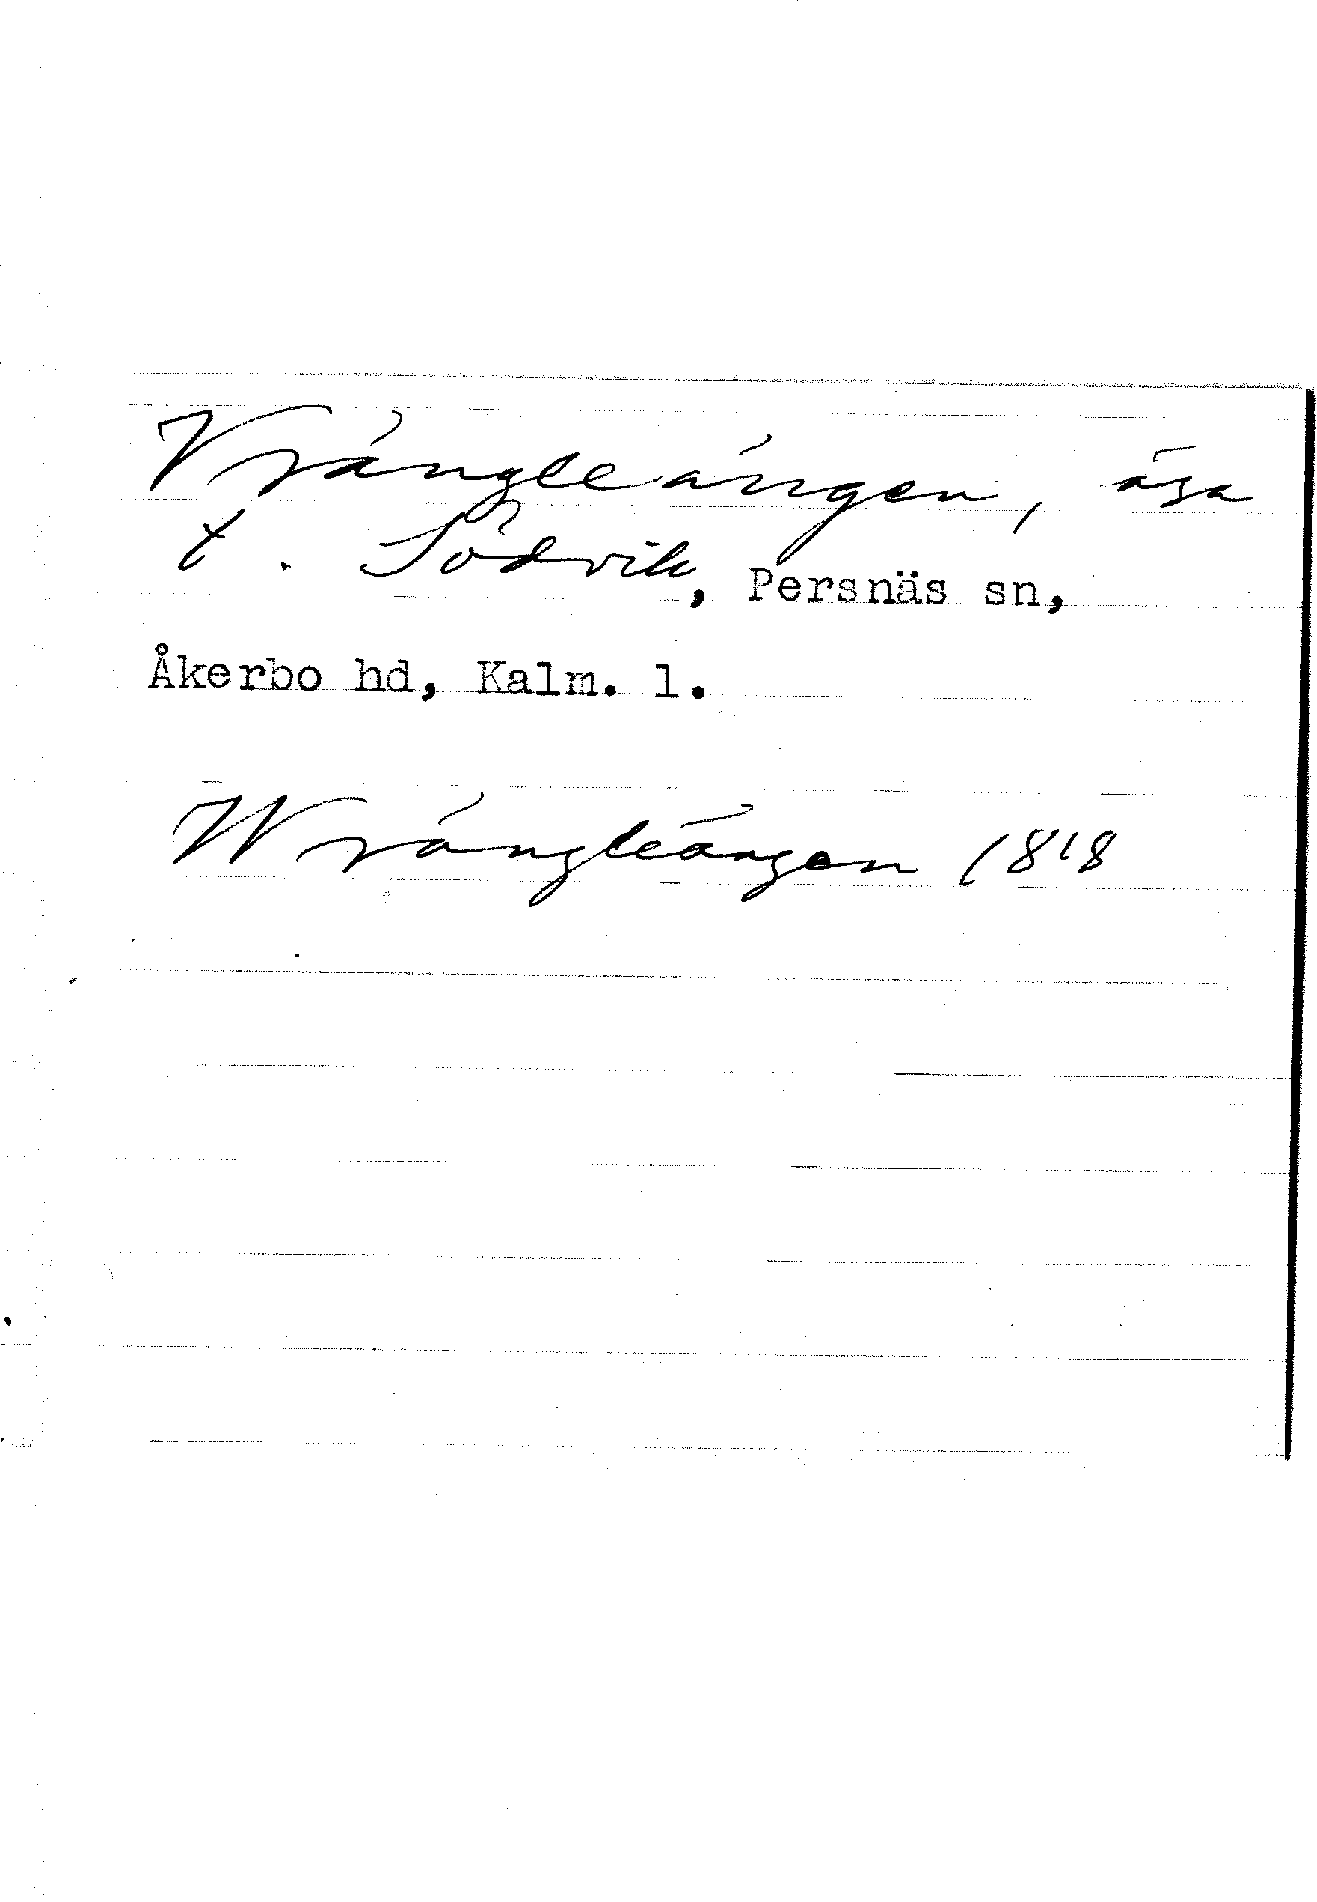 Vrångleängen, äga
t. Södvik, Persnäs sn,
Åkerbo hd, Kalm. l.
Wrångleängen 1818